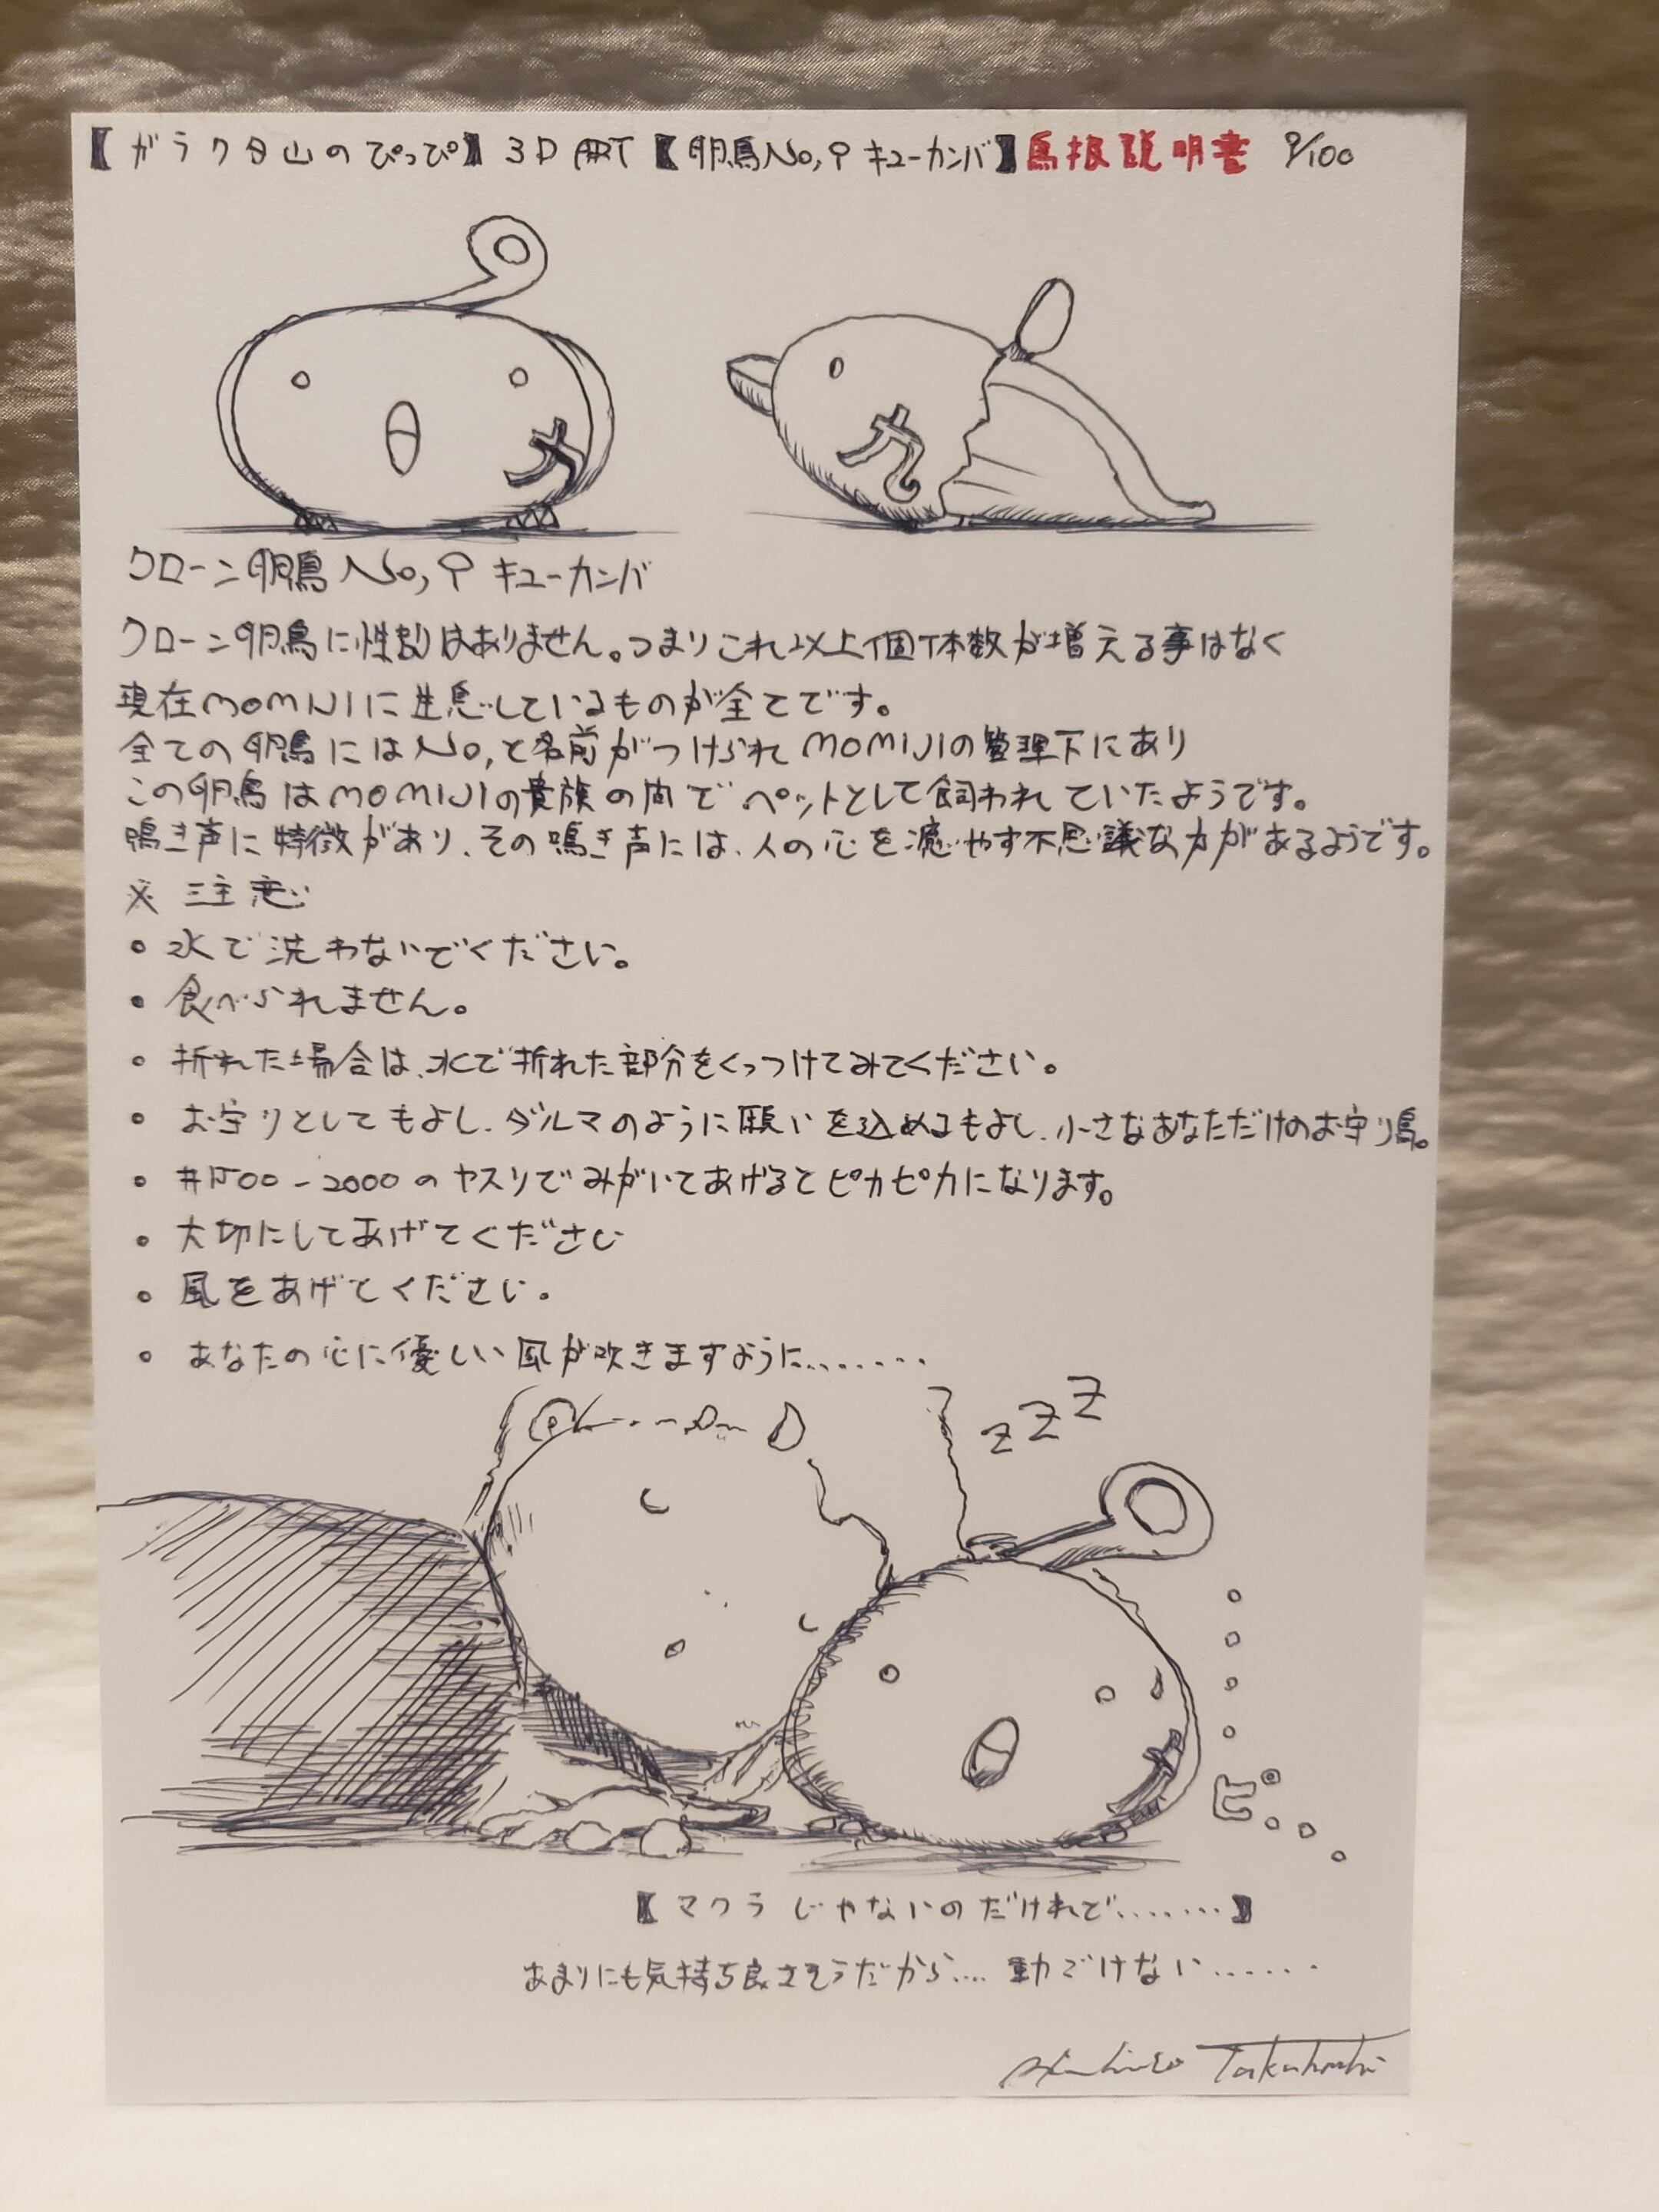 【ガラクタ山のぴっぴ】3D ART【卵鳥No,9 キューカンバ】鳥扱説明書 9/100
九
九
クローン卵鳥 No, 9 キューカンバ
クローン卵鳥に性別はありません。つまりこれ以上個体数が増える事はなく
現在MOMIJIに生息しているものが全てです。
全ての卵鳥にはNo,と名前がつけられMOMIJIの管理下にあり
この卵鳥はMOMIJIの貴族の間でペットとして飼われていたようです。
鳴き声に特徴があり、その鳴き声には、人の心を癒やす不思議な力があるようです。
※ 注意
• 水で洗わないでください。
• 食べられません。
• 折れた場合は、水で折れた部分をくっつけてみてください。
• お守りとしてもよし、ダルマのように願いを込めるもよし、小さなあなただけのお守り鳥。
• #1500-2000のヤスリでみがいてあげるとピカピカになります。
• 大切にしてあげてください
• 風をあげてください。
• あなたの心に優しい風が吹きますように.......
zZZ
ピ
【マクラじゃないのだけれど.......】
あまりにも気持ち良さそうだから.... 動ごけない......
Takahashi